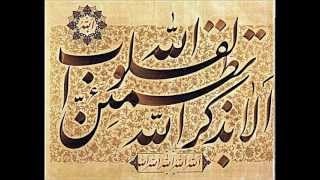 الا بذكر الله
تطمئن
القلوب